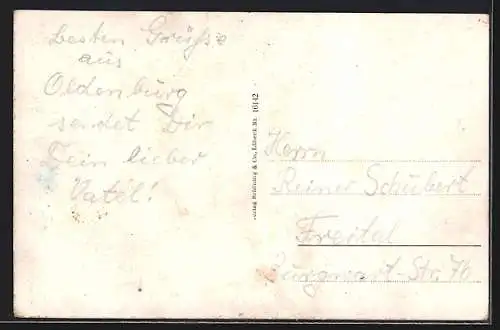 Besten Grüße
aus
Oldenburg
sendet Dir
Dein lieber
Vatel!
Verlag Schöning & Co., Lübeck Nr. 16142
Herrn
Reiner Schubert
Freital
Burgwart-Str. 76